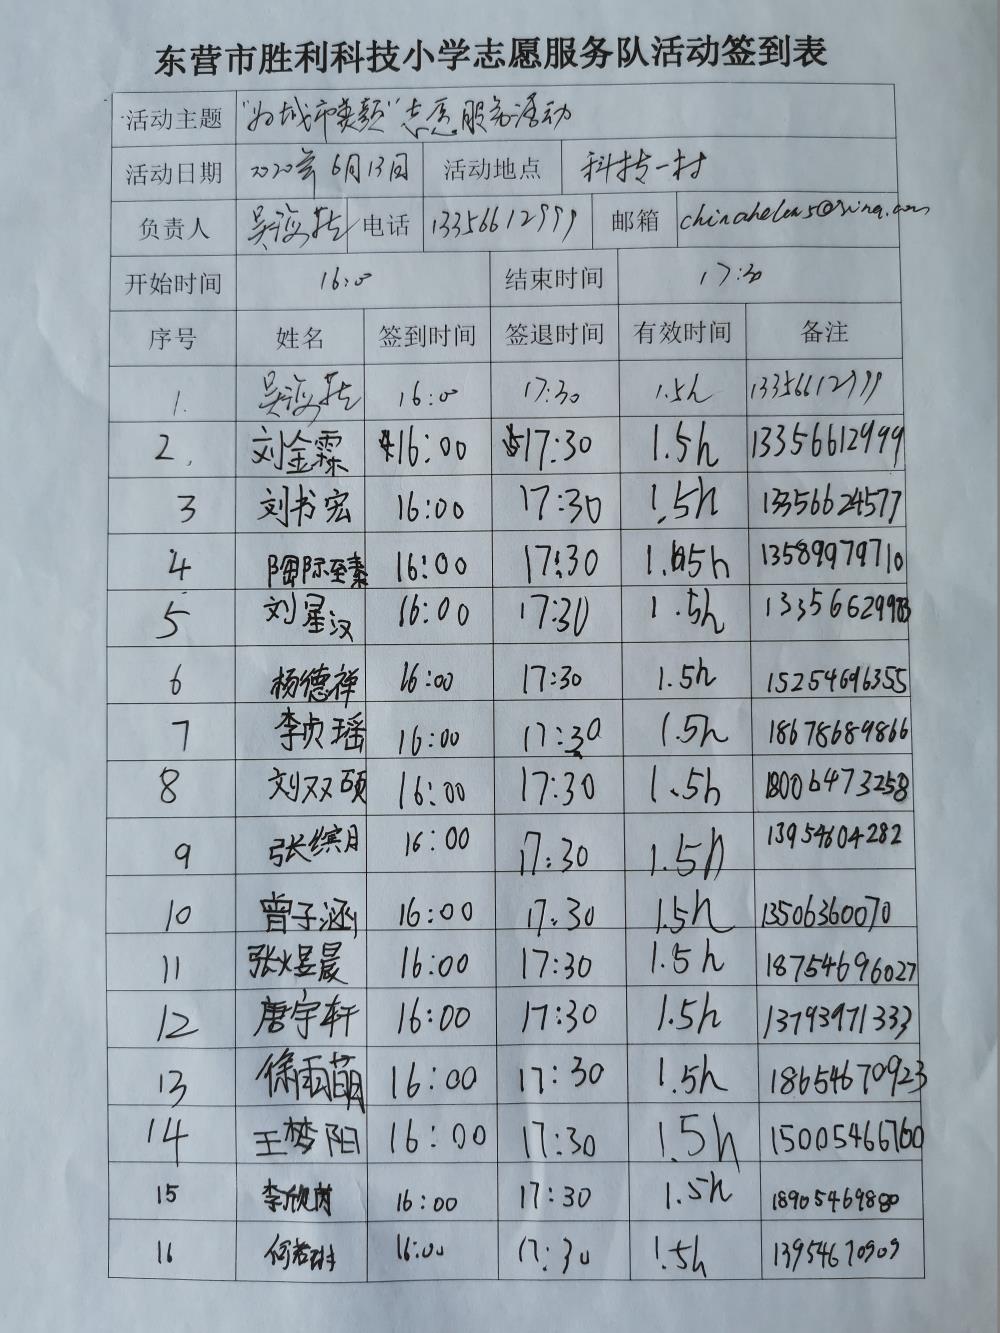 东营市胜利科技小学志愿服务队活动签到表
活动主题 "为城市美颜"志愿服务活动
活动日期 2020年6月13日 活动地点 科技一村
负责人 吴海菘 电话 13356612999 邮箱 chinahelen5@sina.com
开始时间 16:00 结束时间 17:30
序号 姓名 签到时间 签退时间 有效时间 备注
1. 16:00 17:30 1.5h 13356612999
2. 刘金霖 16:00 17:30 1.5h 13356612999
3 刘书宏 16:00 17:30 1.5h 13356624577
4 陶际至臻 16:00 17:30 1.5h 13589979710
5 刘星汉 16:00 17:30 1.5h
6 杨德禅 16:00 17:30 1.5h 15254696355
7 李贞瑶 16:00 17:30 1.5h 18678689866
8 刘双硕 16:00 17:30 1.5h 18006473258
9 张缤月 16:00 17:30 1.5h 13954604282
10 曾子涵 16:00 17:30 1.5h 13506360070
11 张煜晨 16:00 17:30 1.5h 18754696027
12 唐宇轩 16:00 17:30 1.5h 13793971333
13 徐雨萌 16:00 17:30 1.5h 18654670923
14 王梦阳 16:00 17:30 1.5h 15005466760
15 李欣芮 16:00 17:30 1.5h 18905469880
16 何若琳 16:00 17:30 1.5h 13954670909